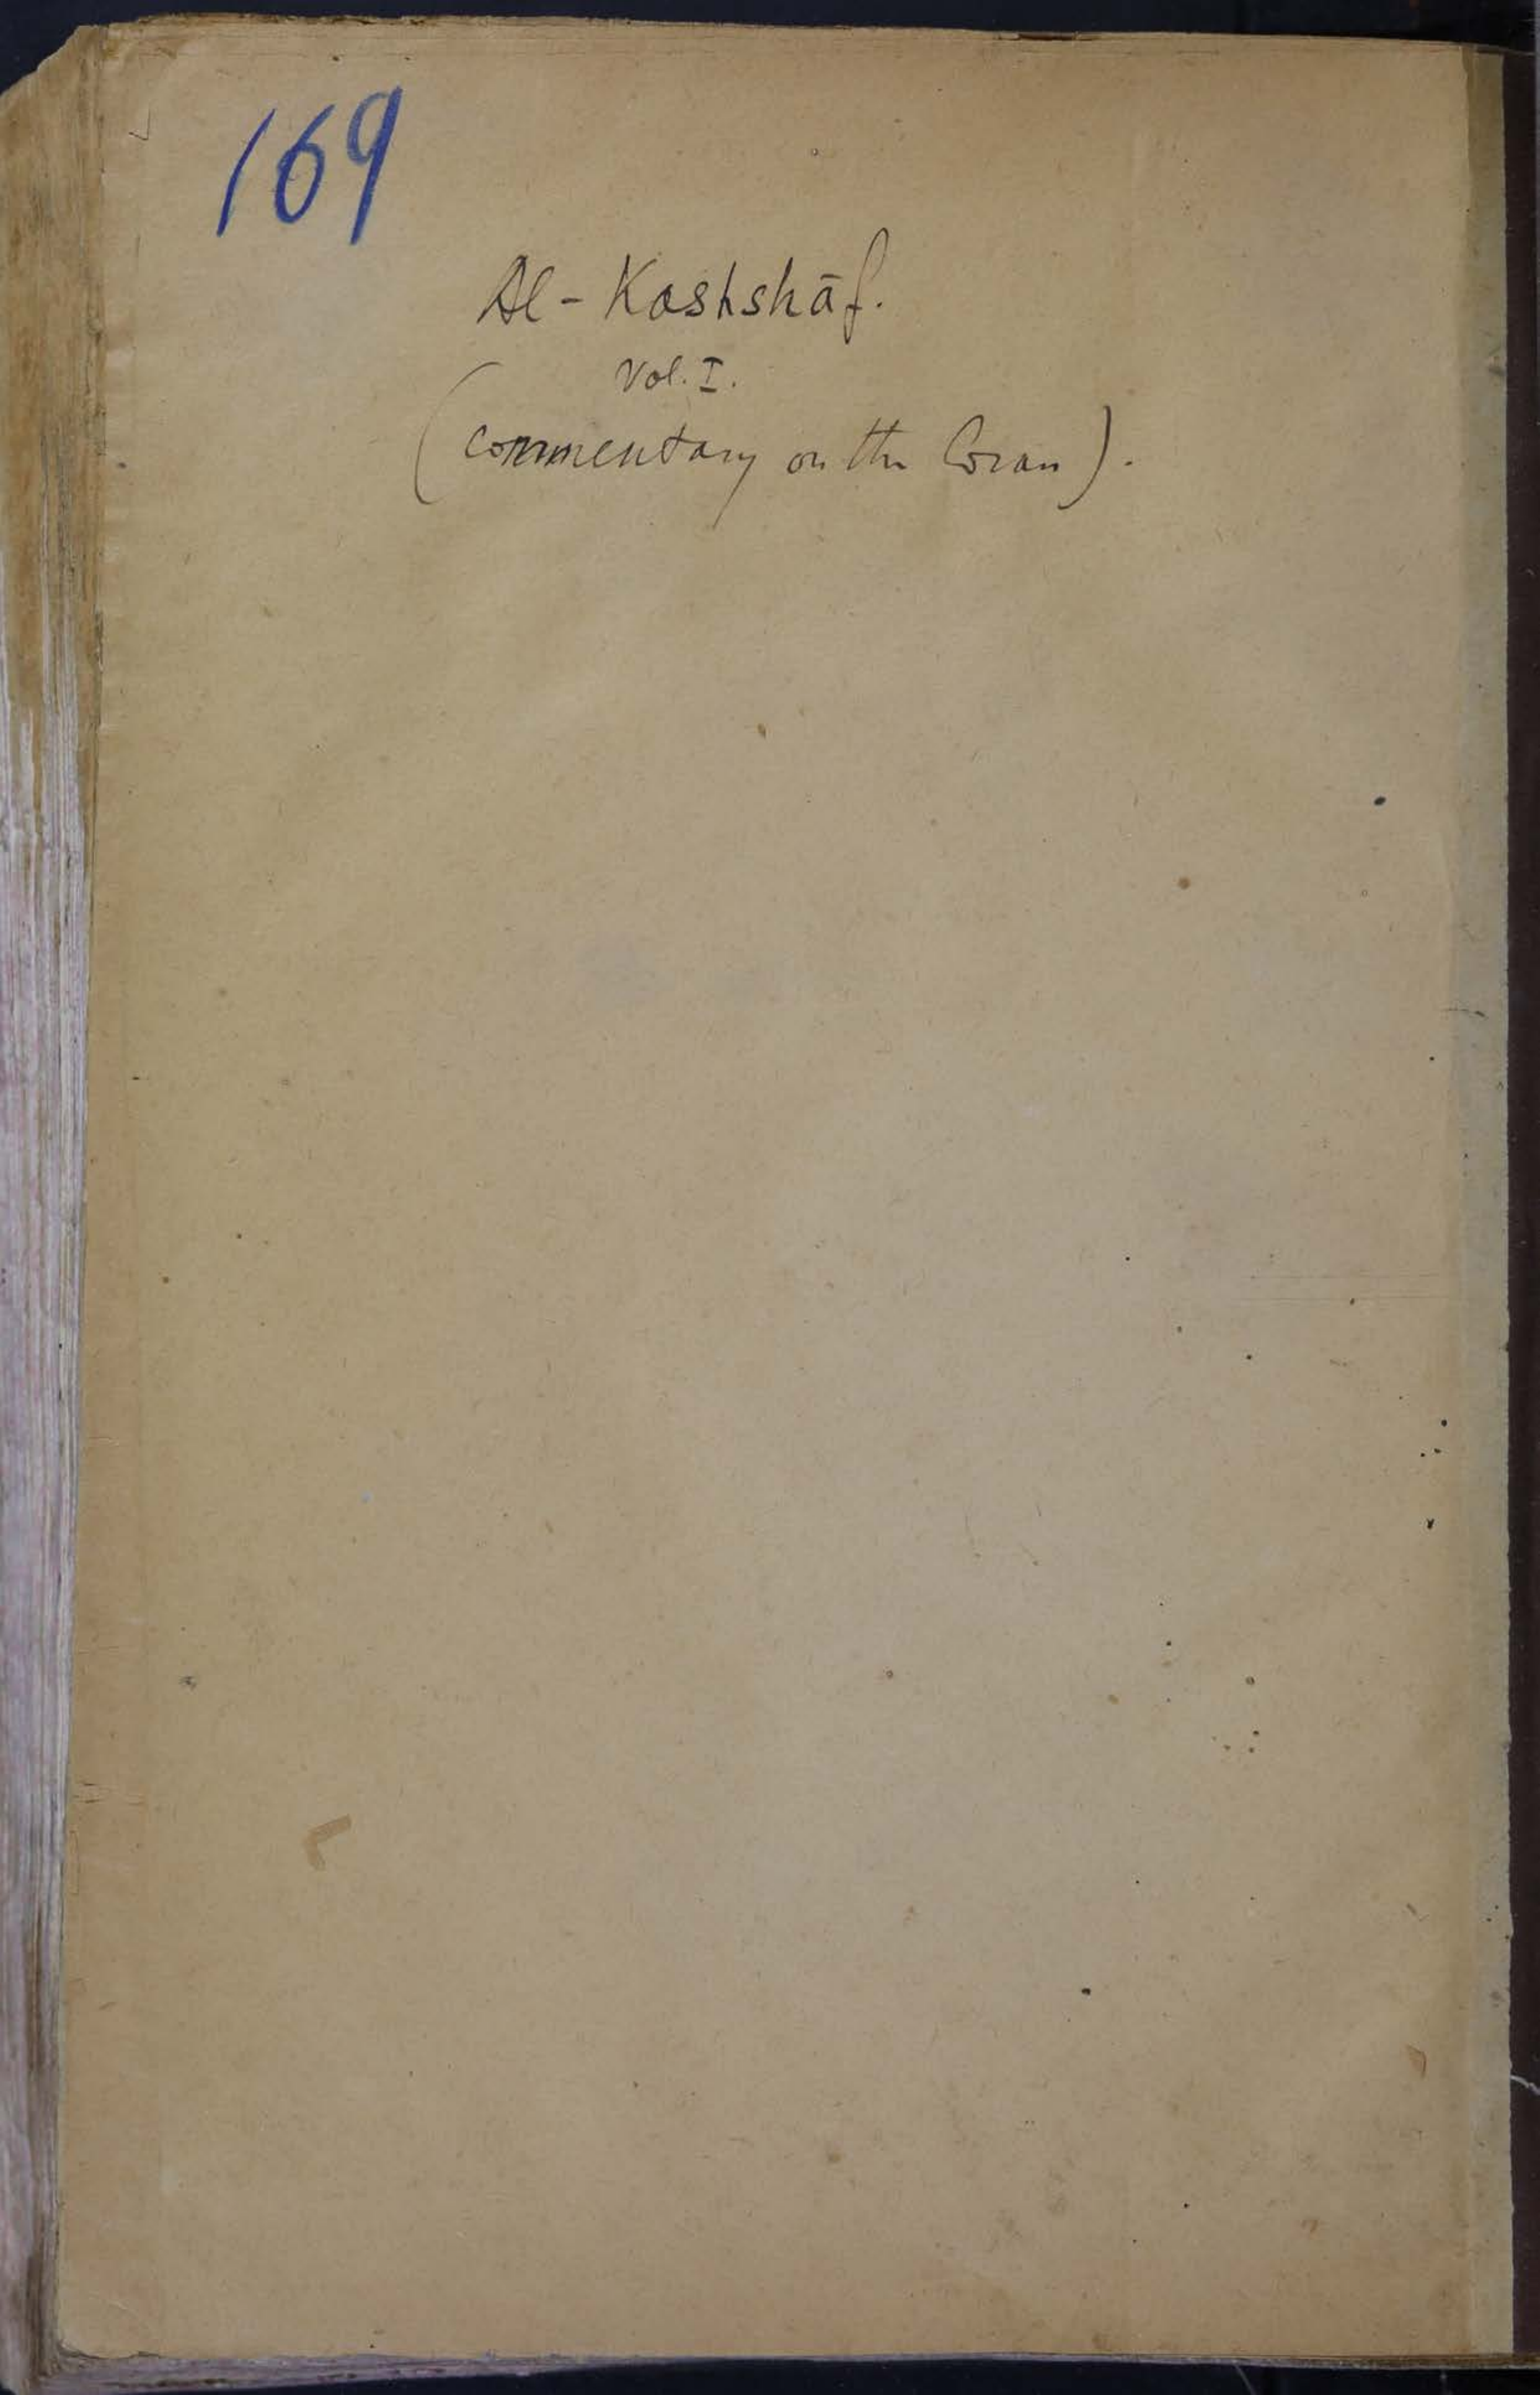 169
Al-Kashshāf.
Vol. I.
(commentary on the Coran).